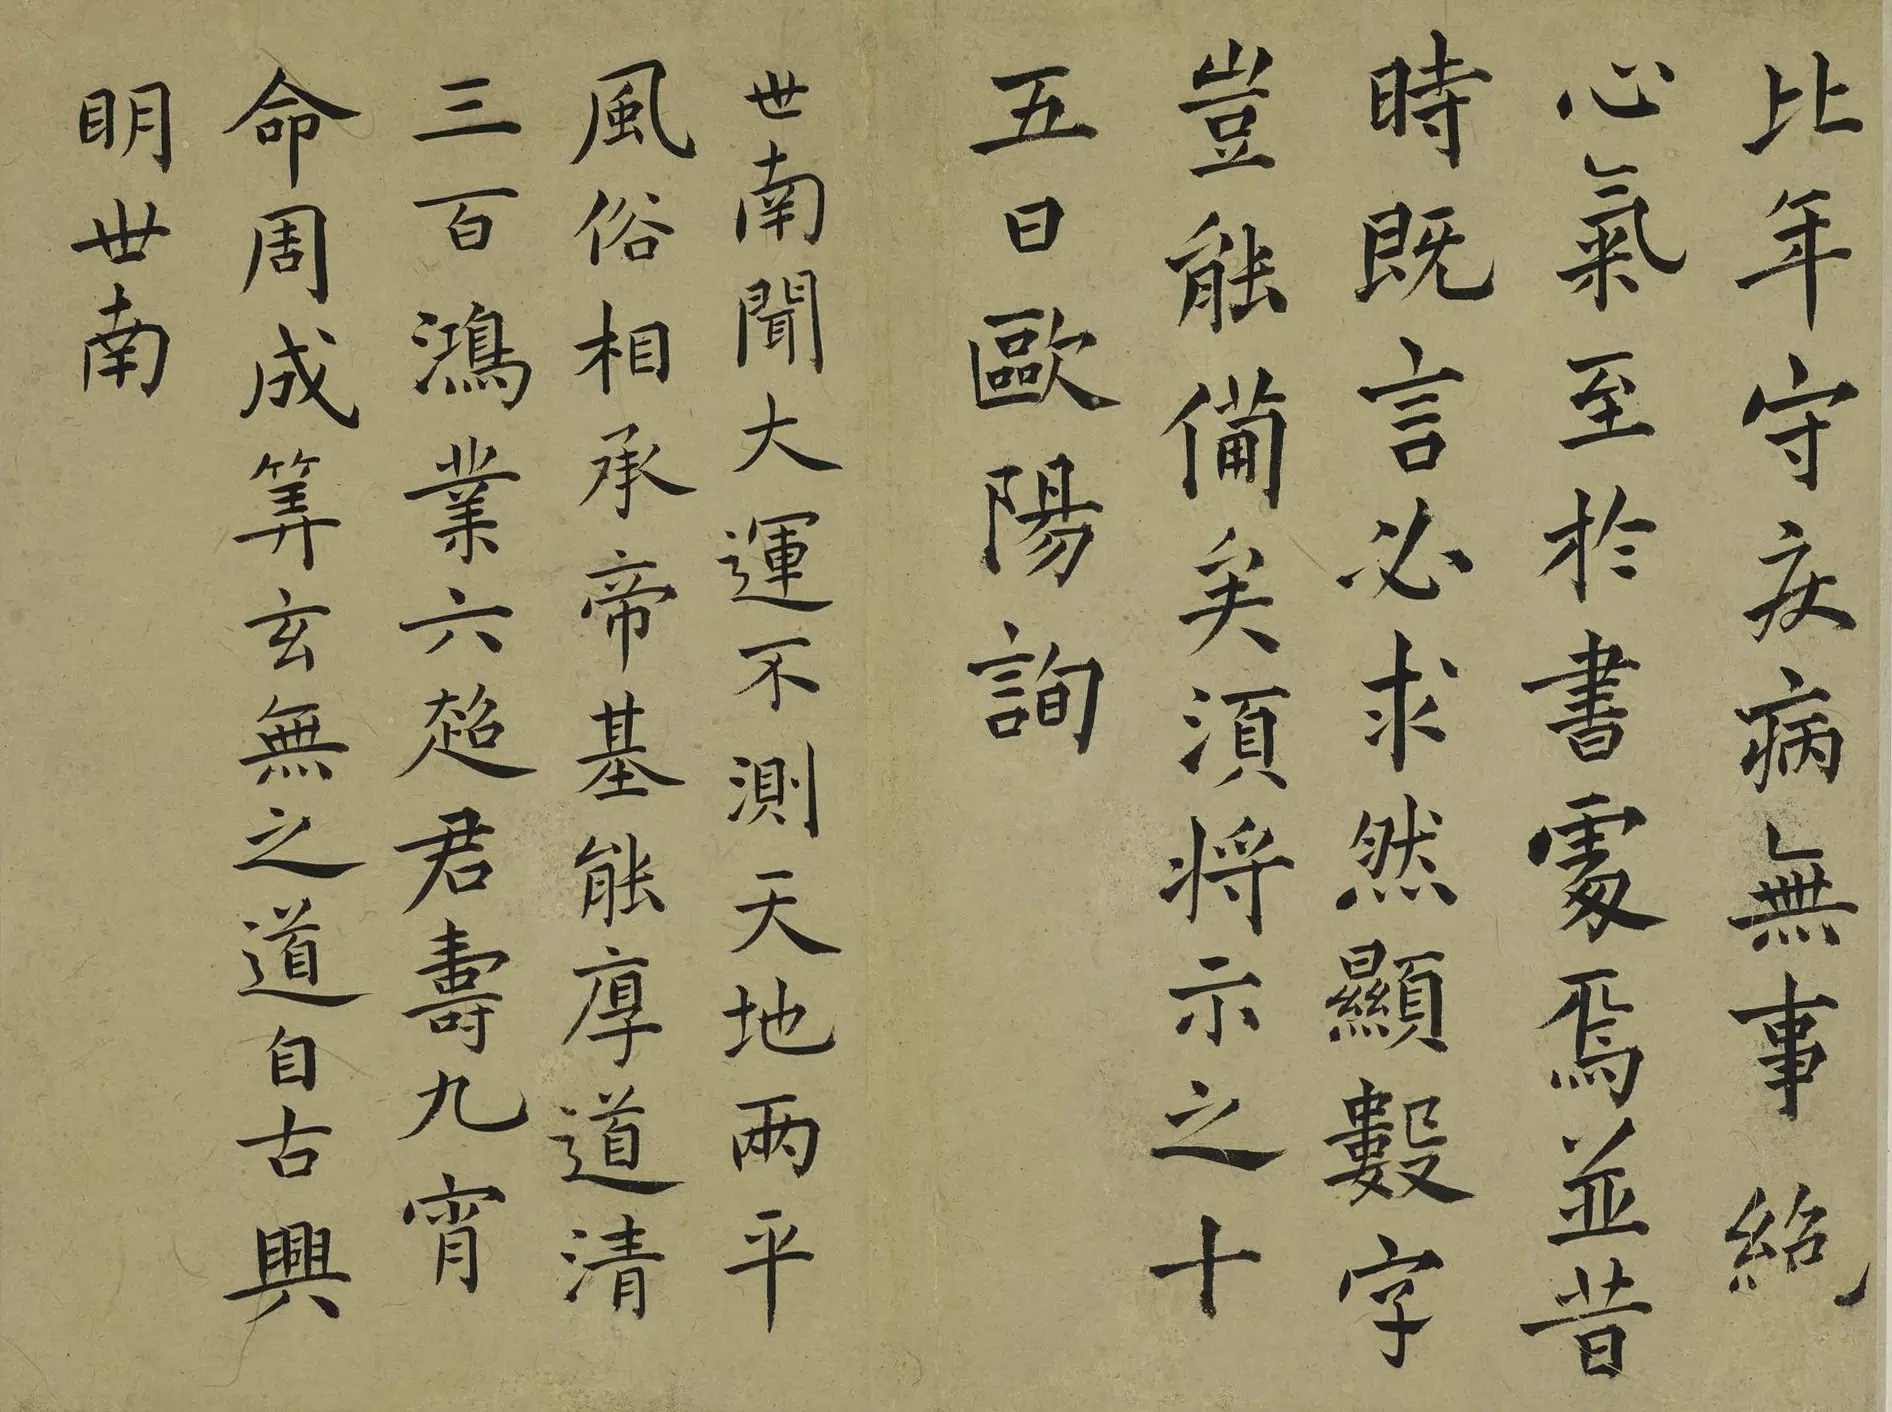 比年守疾病無事絕
心氣至於書處焉並昔
時既言必求然顯數字
豈能備矣須將示之十
五日歐陽詢
世南聞大運不測天地兩平
風俗相承帝基能厚道清
三百鴻業六超君壽九霄
命周成筭玄無之道自古興
明世南